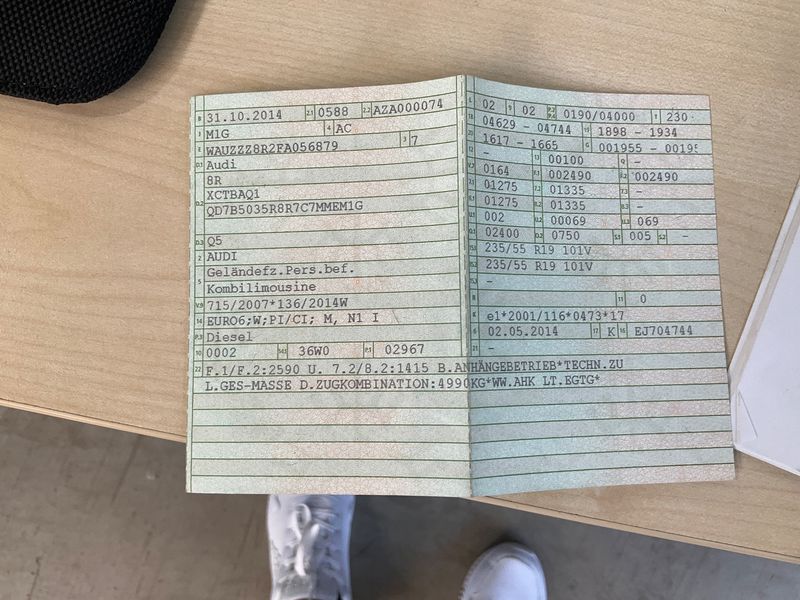 B 31.10.2014 2.1 0588 2.2 AZA000074
J M1G 4 AC
E WAUZZZ8R2FA056879 3 7
D.1 Audi
8R
D.2 XCTBAQ1
QD7B5035R8R7C7MMEM1G
D.3 Q5
2 AUDI
5 Geländefz.Pers.bef.
Kombilimousine
V.9 715/2007*136/2014W
14 EURO6;W;PI/CI; M, N1 I
P.3 Diesel
10 0002 14.1 36W0 P.1 02967
L 02 9 02 P.2 P.4 0190/04000 T 230
18 04629 - 04744 19 1898 - 1934
20 1617 - 1665 G 001955 -
12 - 13 00100 Q -
V.7 0164 F.1 002490 F.2 002490
7.1 01275 7.2 01335 7.3 -
8.1 01275 8.2 01335 8.3 -
U.1 002 U.2 00069 U.3 069
O.1 02400 O.2 0750 S.1 005 S.2 -
15.1 235/55 R19 101V
15.2 235/55 R19 101V
15.3 -
R 11 0
K e1*2001/116*0473*17
6 02.05.2014 17 K 16 EJ704744
21 -
22 F.1/F.2:2590 U. 7.2/8.2:1415 B.ANHÄNGEBETRIEB*TECHN.ZU
L.GES-MASSE D.ZUGKOMBINATION:4990KG*WW.AHK LT.EGTG*